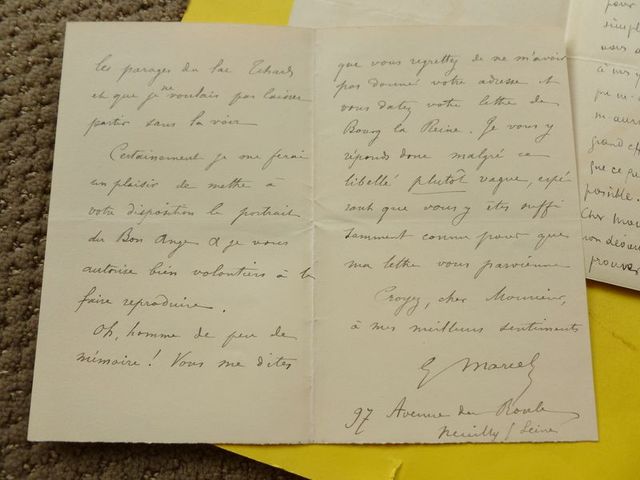 les parages du lac Tchad
et que je ne voulais pas laisser
partir sans la voir.
Certainement je me ferai
un plaisir de mettre à
votre disposition le portrait
du Bon Ange & je vous
autorise bien volontiers à le
faire reproduire.
Oh, homme de peu de
mémoire! Vous me dites
que vous regrettez de ne m'avoir
pas donné votre adresse et
vous datez votre lettre de
Bourg la Reine. Je vous y
réponds donc malgré ce
libellé plutôt vague, espé
rant que vous y êtes suffi
samment connu pour que
ma lettre vous parvienne
Croyez, cher Monsieur,
à mes meilleurs sentiments
G Marcel
97 Avenue du Roule
Neuilly / Seine
pour
vous a
à vos
qu
m'aur
grand
que ce
possible.
Cher Mon
mon dévou